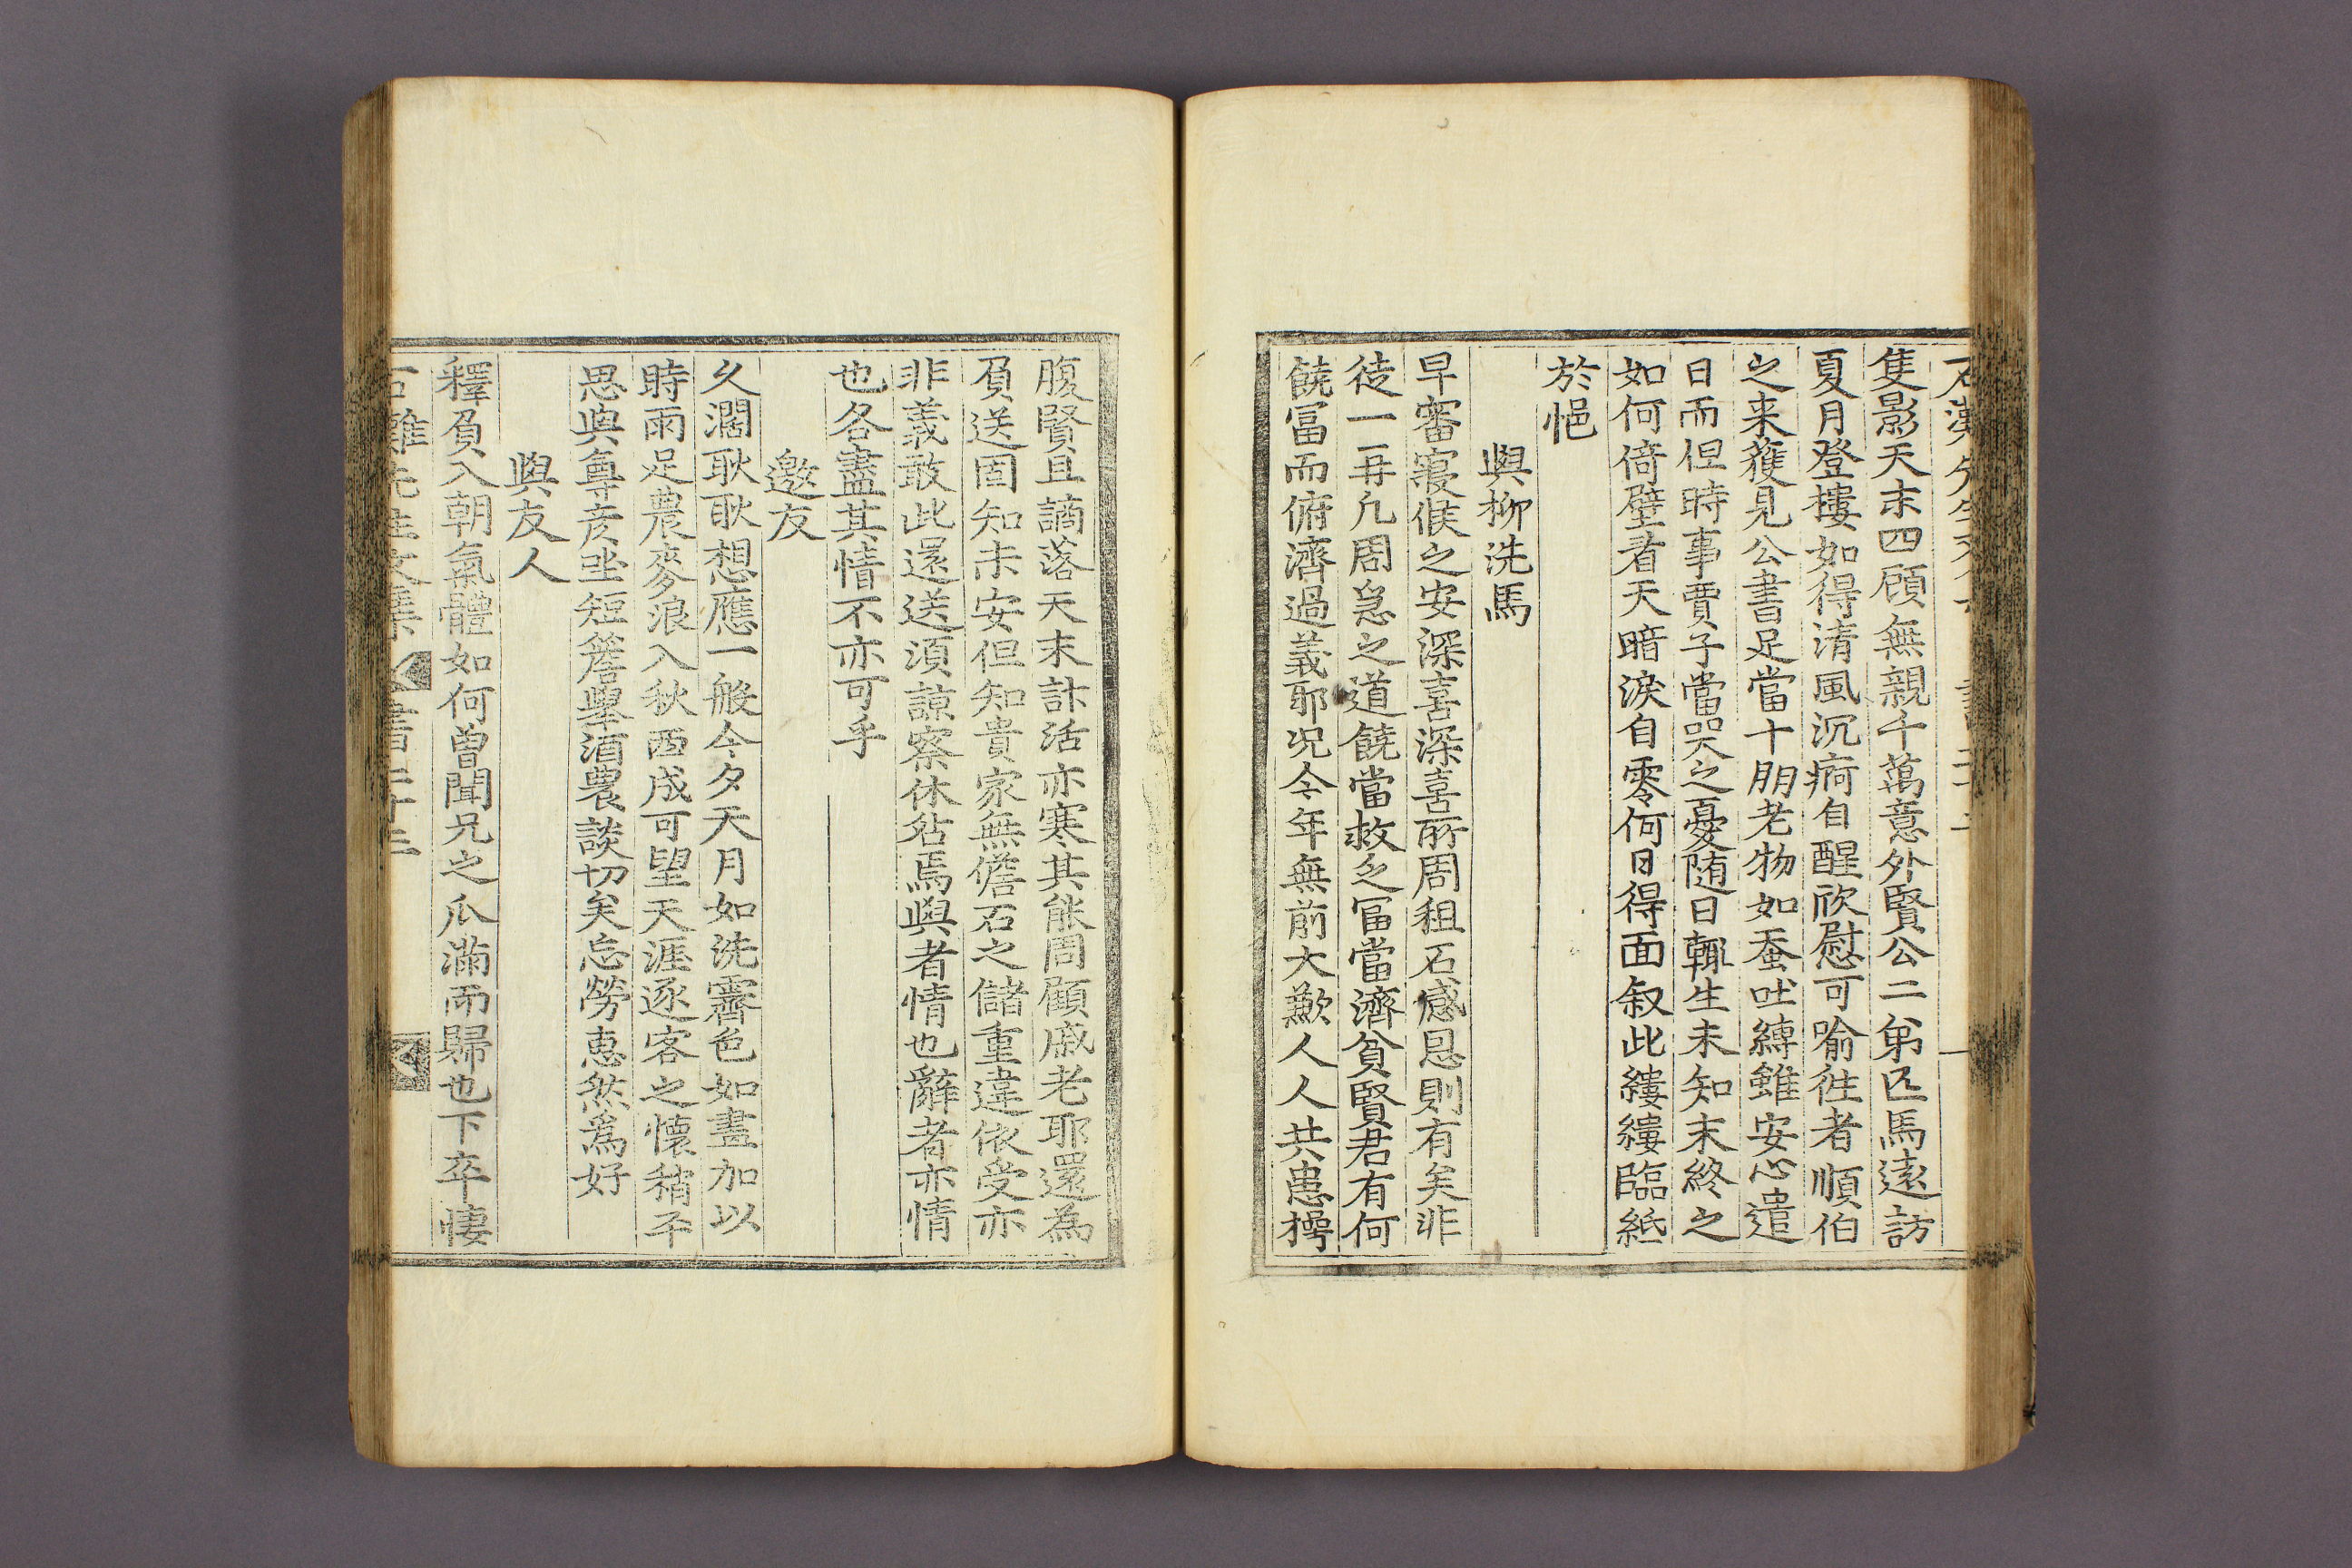 隻影天末四顧無親千萬意外賢公二弟匹馬遠訪
夏月登樓如得清風沉痾自醒欣慰可喻徃者順伯
之来獲見公書足當十朋老物如蚕吐縳雖安心遣
日而但時事賈子當哭之憂随日輙生未知末終之
如何倚壁看天暗淚自零何日得面叙此縷縷臨紙
於悒
與柳洗馬
早審寢候之安深喜深喜所周租石感恩則有矣非
徒一再凡周急之道饒當救乏冨當濟貧賢君有何
饒冨而俯濟過義耶况今年無前大歉人人共患楇
腹賢且謫落天末計活亦寒其能周顧戚老耶還為
負送固知未安但知貴家無儋石之儲重違依受亦
非義敢此還送須諒察休咎焉與者情也辭者亦情
也各盡其情不亦可乎
邀友
久濶耿耿想應一般今夕天月如洗霽色如晝加以
時雨足農麥浪入秋西成可望天涯逐客之懷稍平
思與尊彦坐短簷擧酒農談切矣忘勞惠然爲好
與友人
釋負入朝氣體如何曾聞兄之瓜滿而歸也下卒悽